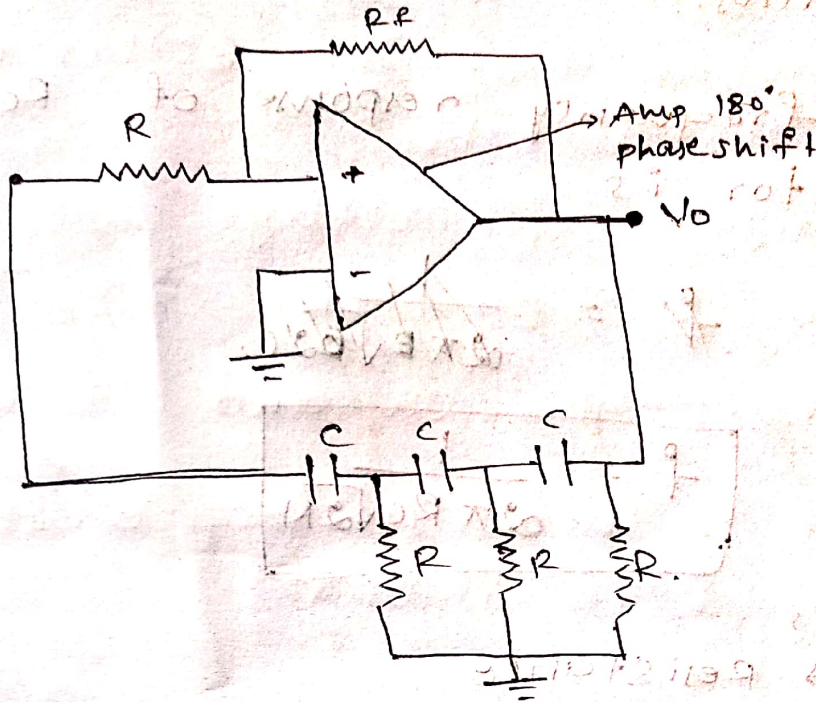 Rf
R
+
-
Amp 180°
phase shift
Vo
C
C
C
R
R
R.